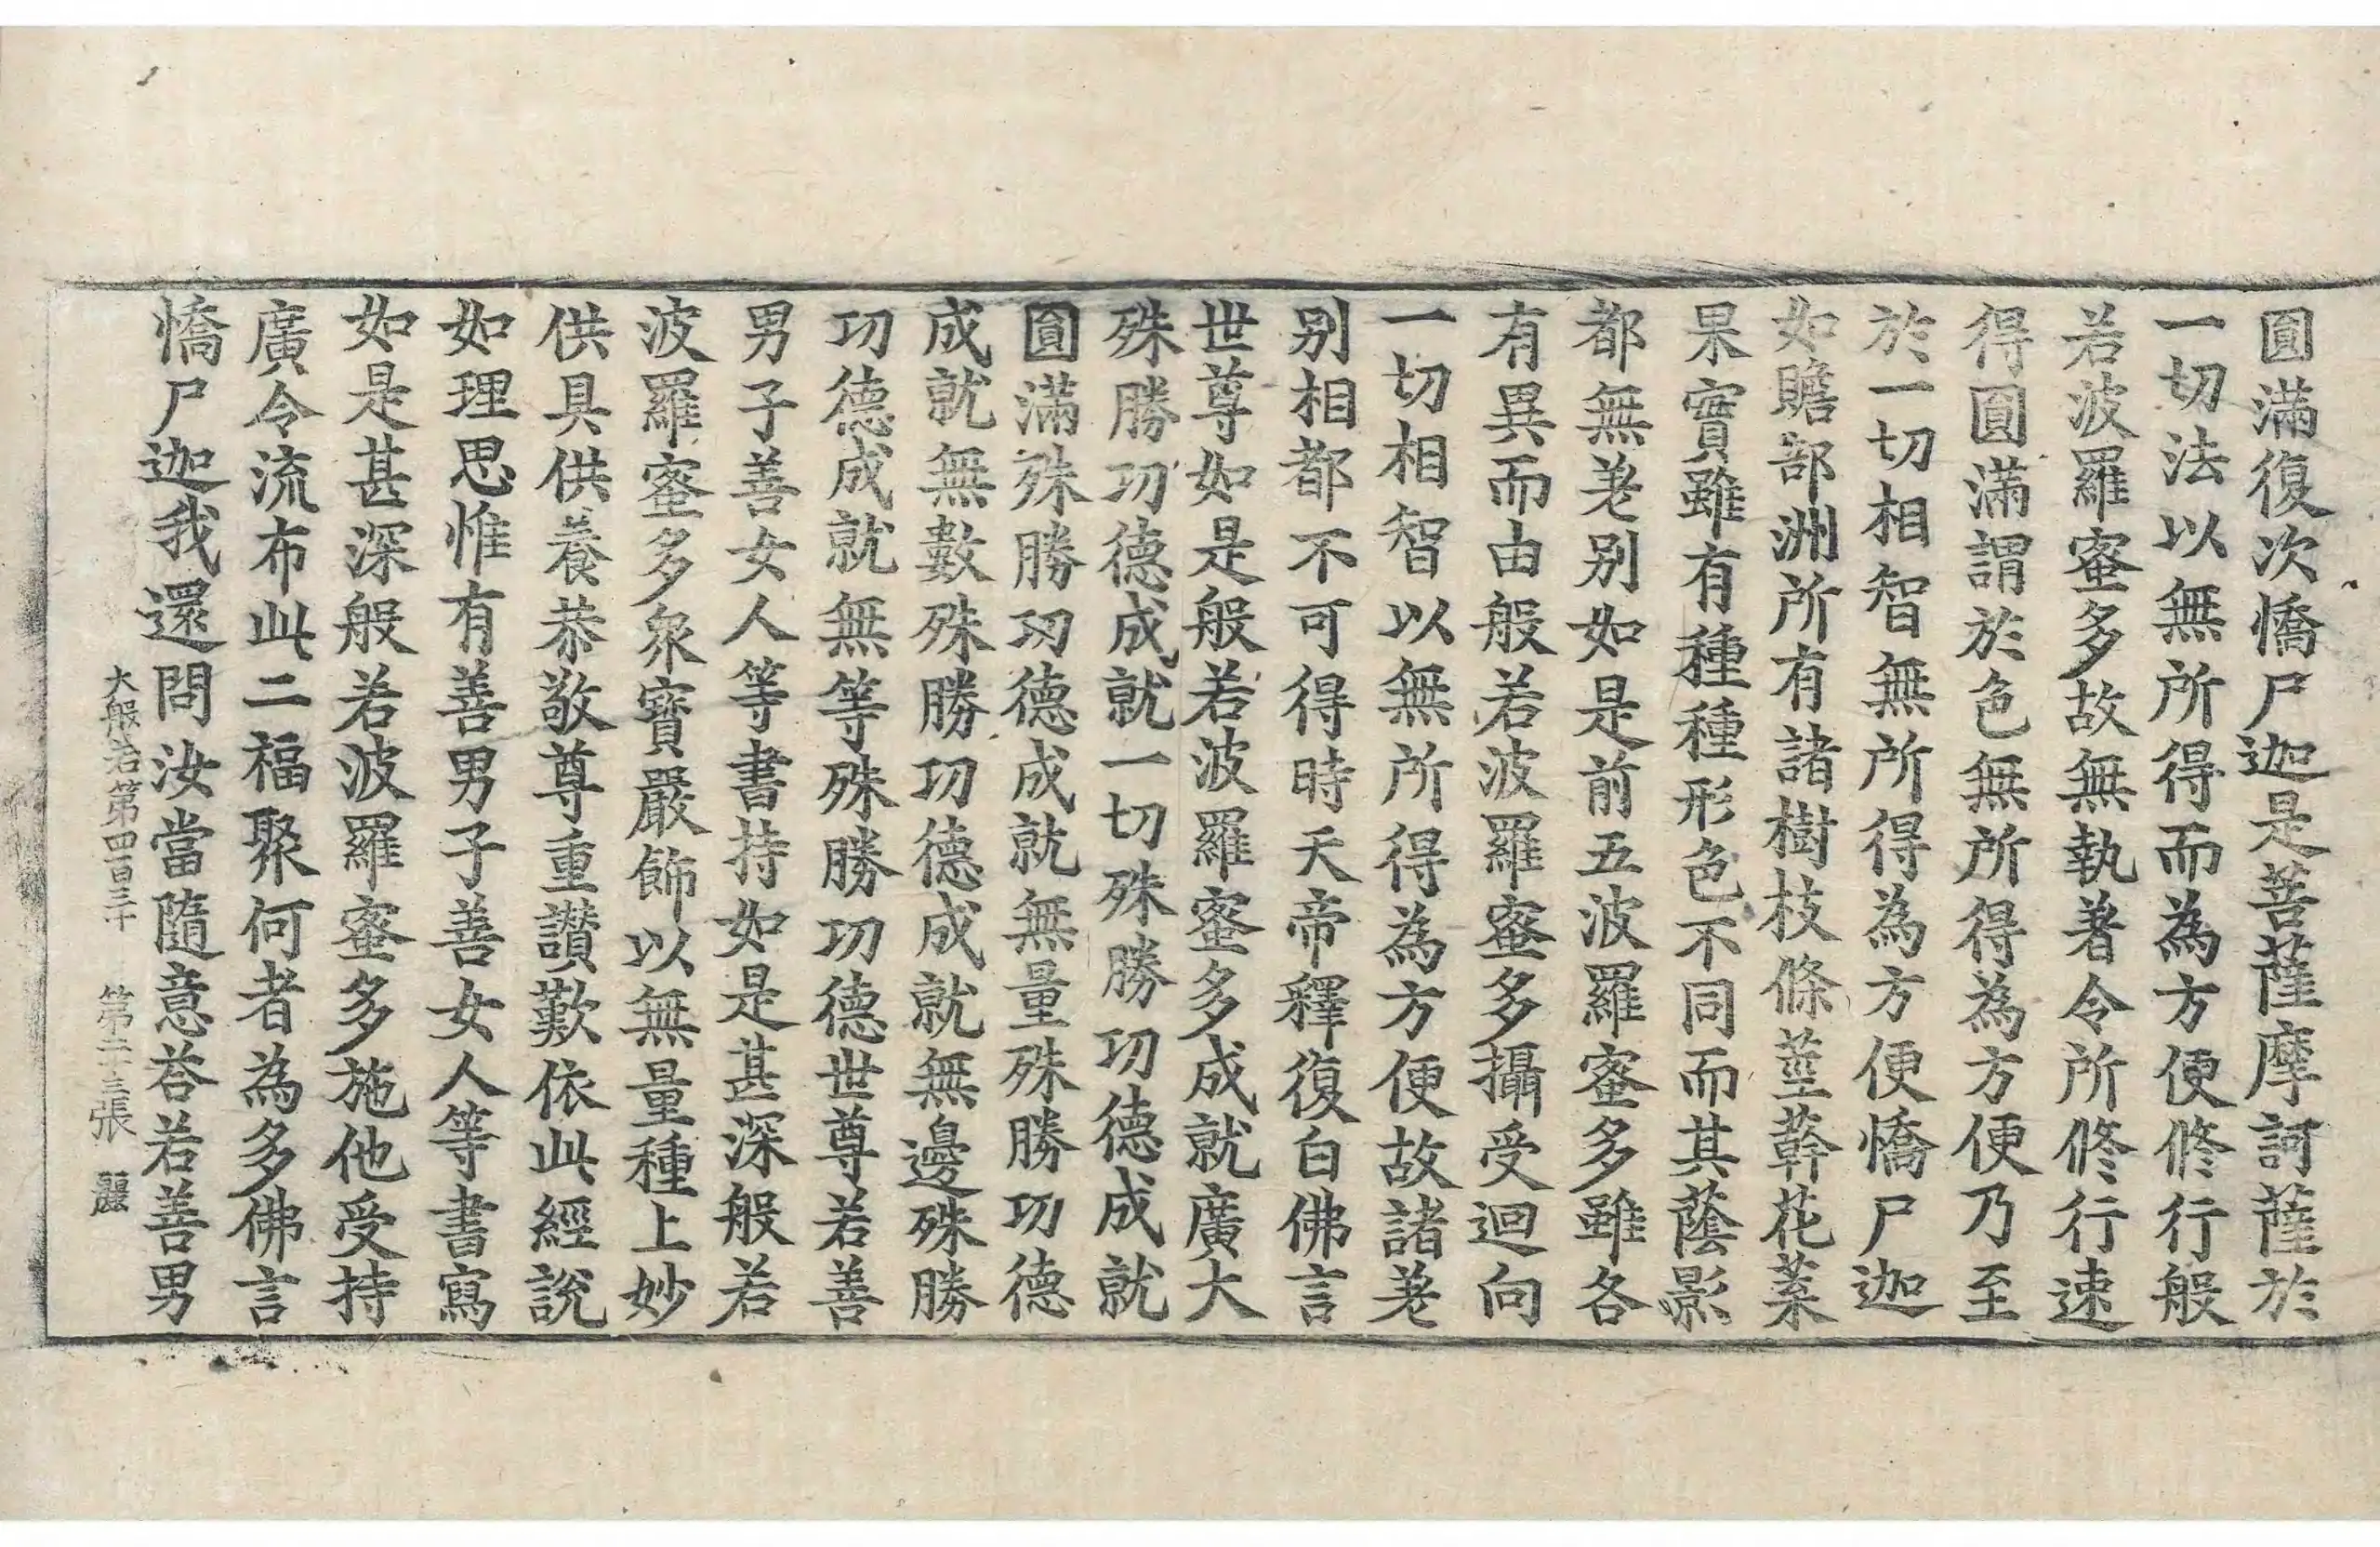 圓滿復次憍尸迦是菩薩摩訶薩於
一切法以無所得而為方便修行般
若波羅蜜多故無執著令所修行速
得圓滿謂於色無所得為方便乃至
於一切相智無所得為方便憍尸迦
如贍部洲所有諸樹枝條莖幹花葉
果實雖有種種形色不同而其蔭影
都無差別如是前五波羅蜜多雖各
有異而由般若波羅蜜多攝受迴向
一切相智以無所得為方便故諸差
別相都不可得時天帝釋復白佛言
世尊如是般若波羅蜜多成就廣大
殊勝功德成就一切殊勝功德成就
圓滿殊勝功德成就無量殊勝功德
成就無數殊勝功德成就無邊殊勝
功德成就無等殊勝功德世尊若善
男子善女人等書持如是甚深般若
波羅蜜多眾寶嚴飾以無量種上妙
供具供養恭敬尊重讚歎依此經說
如理思惟有善男子善女人等書寫
如是甚深般若波羅蜜多施他受持
廣令流布此二福聚何者為多佛言
憍尸迦我還問汝當隨意荅若善男
大般若第四百三十 第二十三張 麗